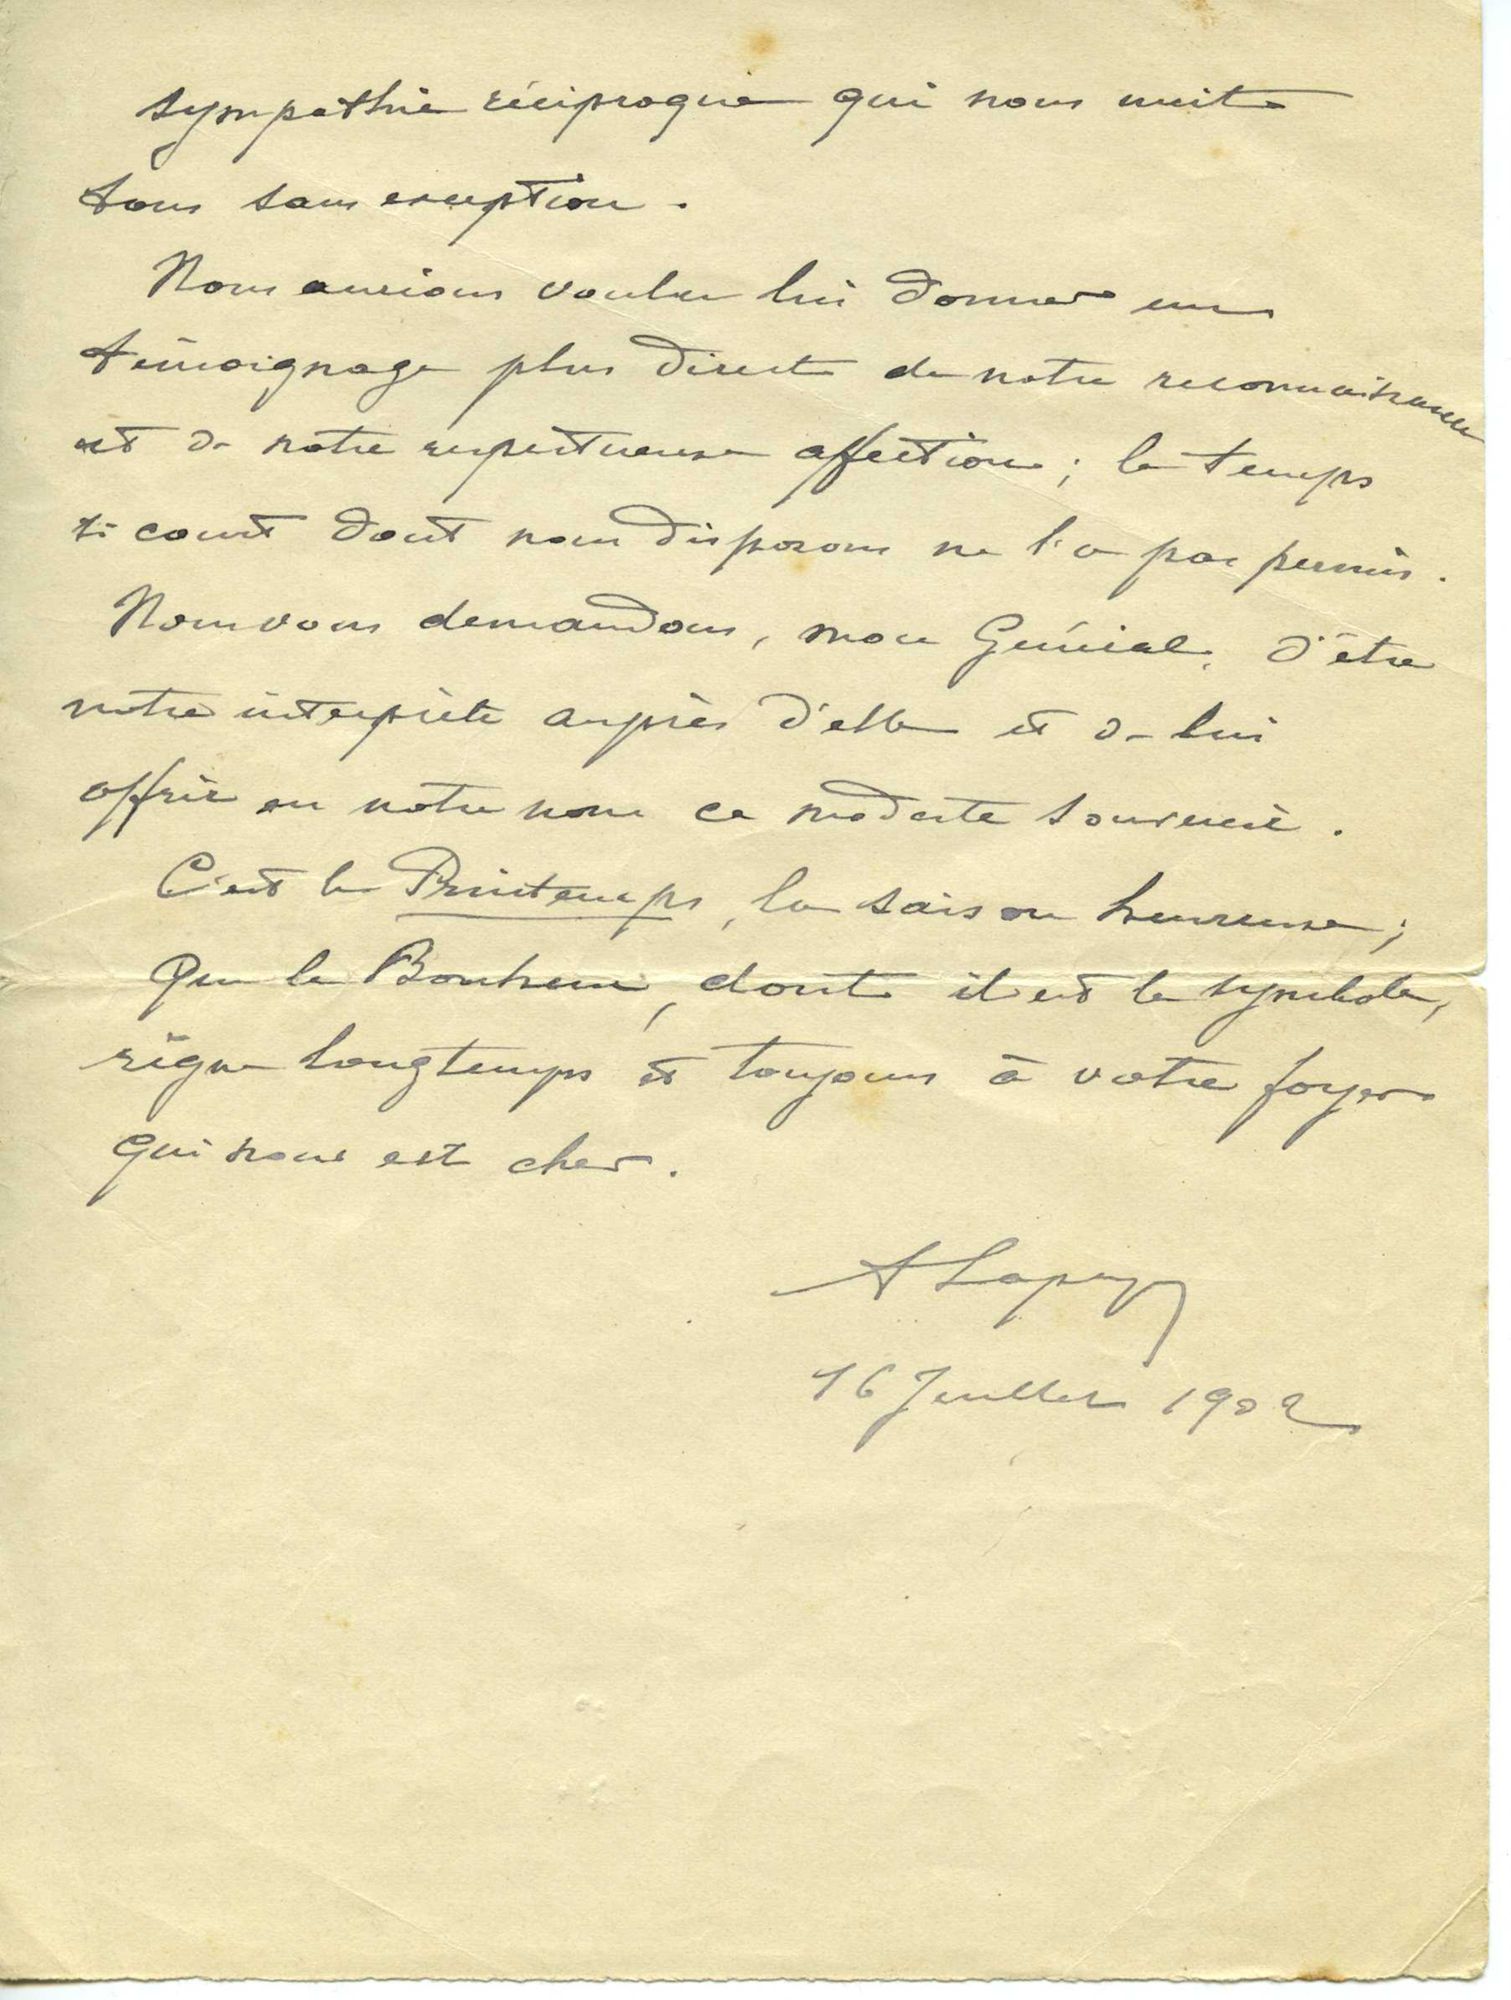 sympathie réciproque qui nous unit
tous sans exception.
Nous aurions voulu lui donner un
témoignage plus direct de notre reconnaissance
et de notre respectueuse affection ; le temps
si court dont nous disposons ne l'a pas permis.
Nous vous demandons, mon Général, d'être
notre interprète auprès d'elle et de lui
offrir en notre nom ce modeste souvenir.
C'est le Printemps, la saison heureuse ;
Que le Bonheur, dont il est le symbole,
règne longtemps et toujours à votre foyer
qui nous est cher.
16 Juillet 1902